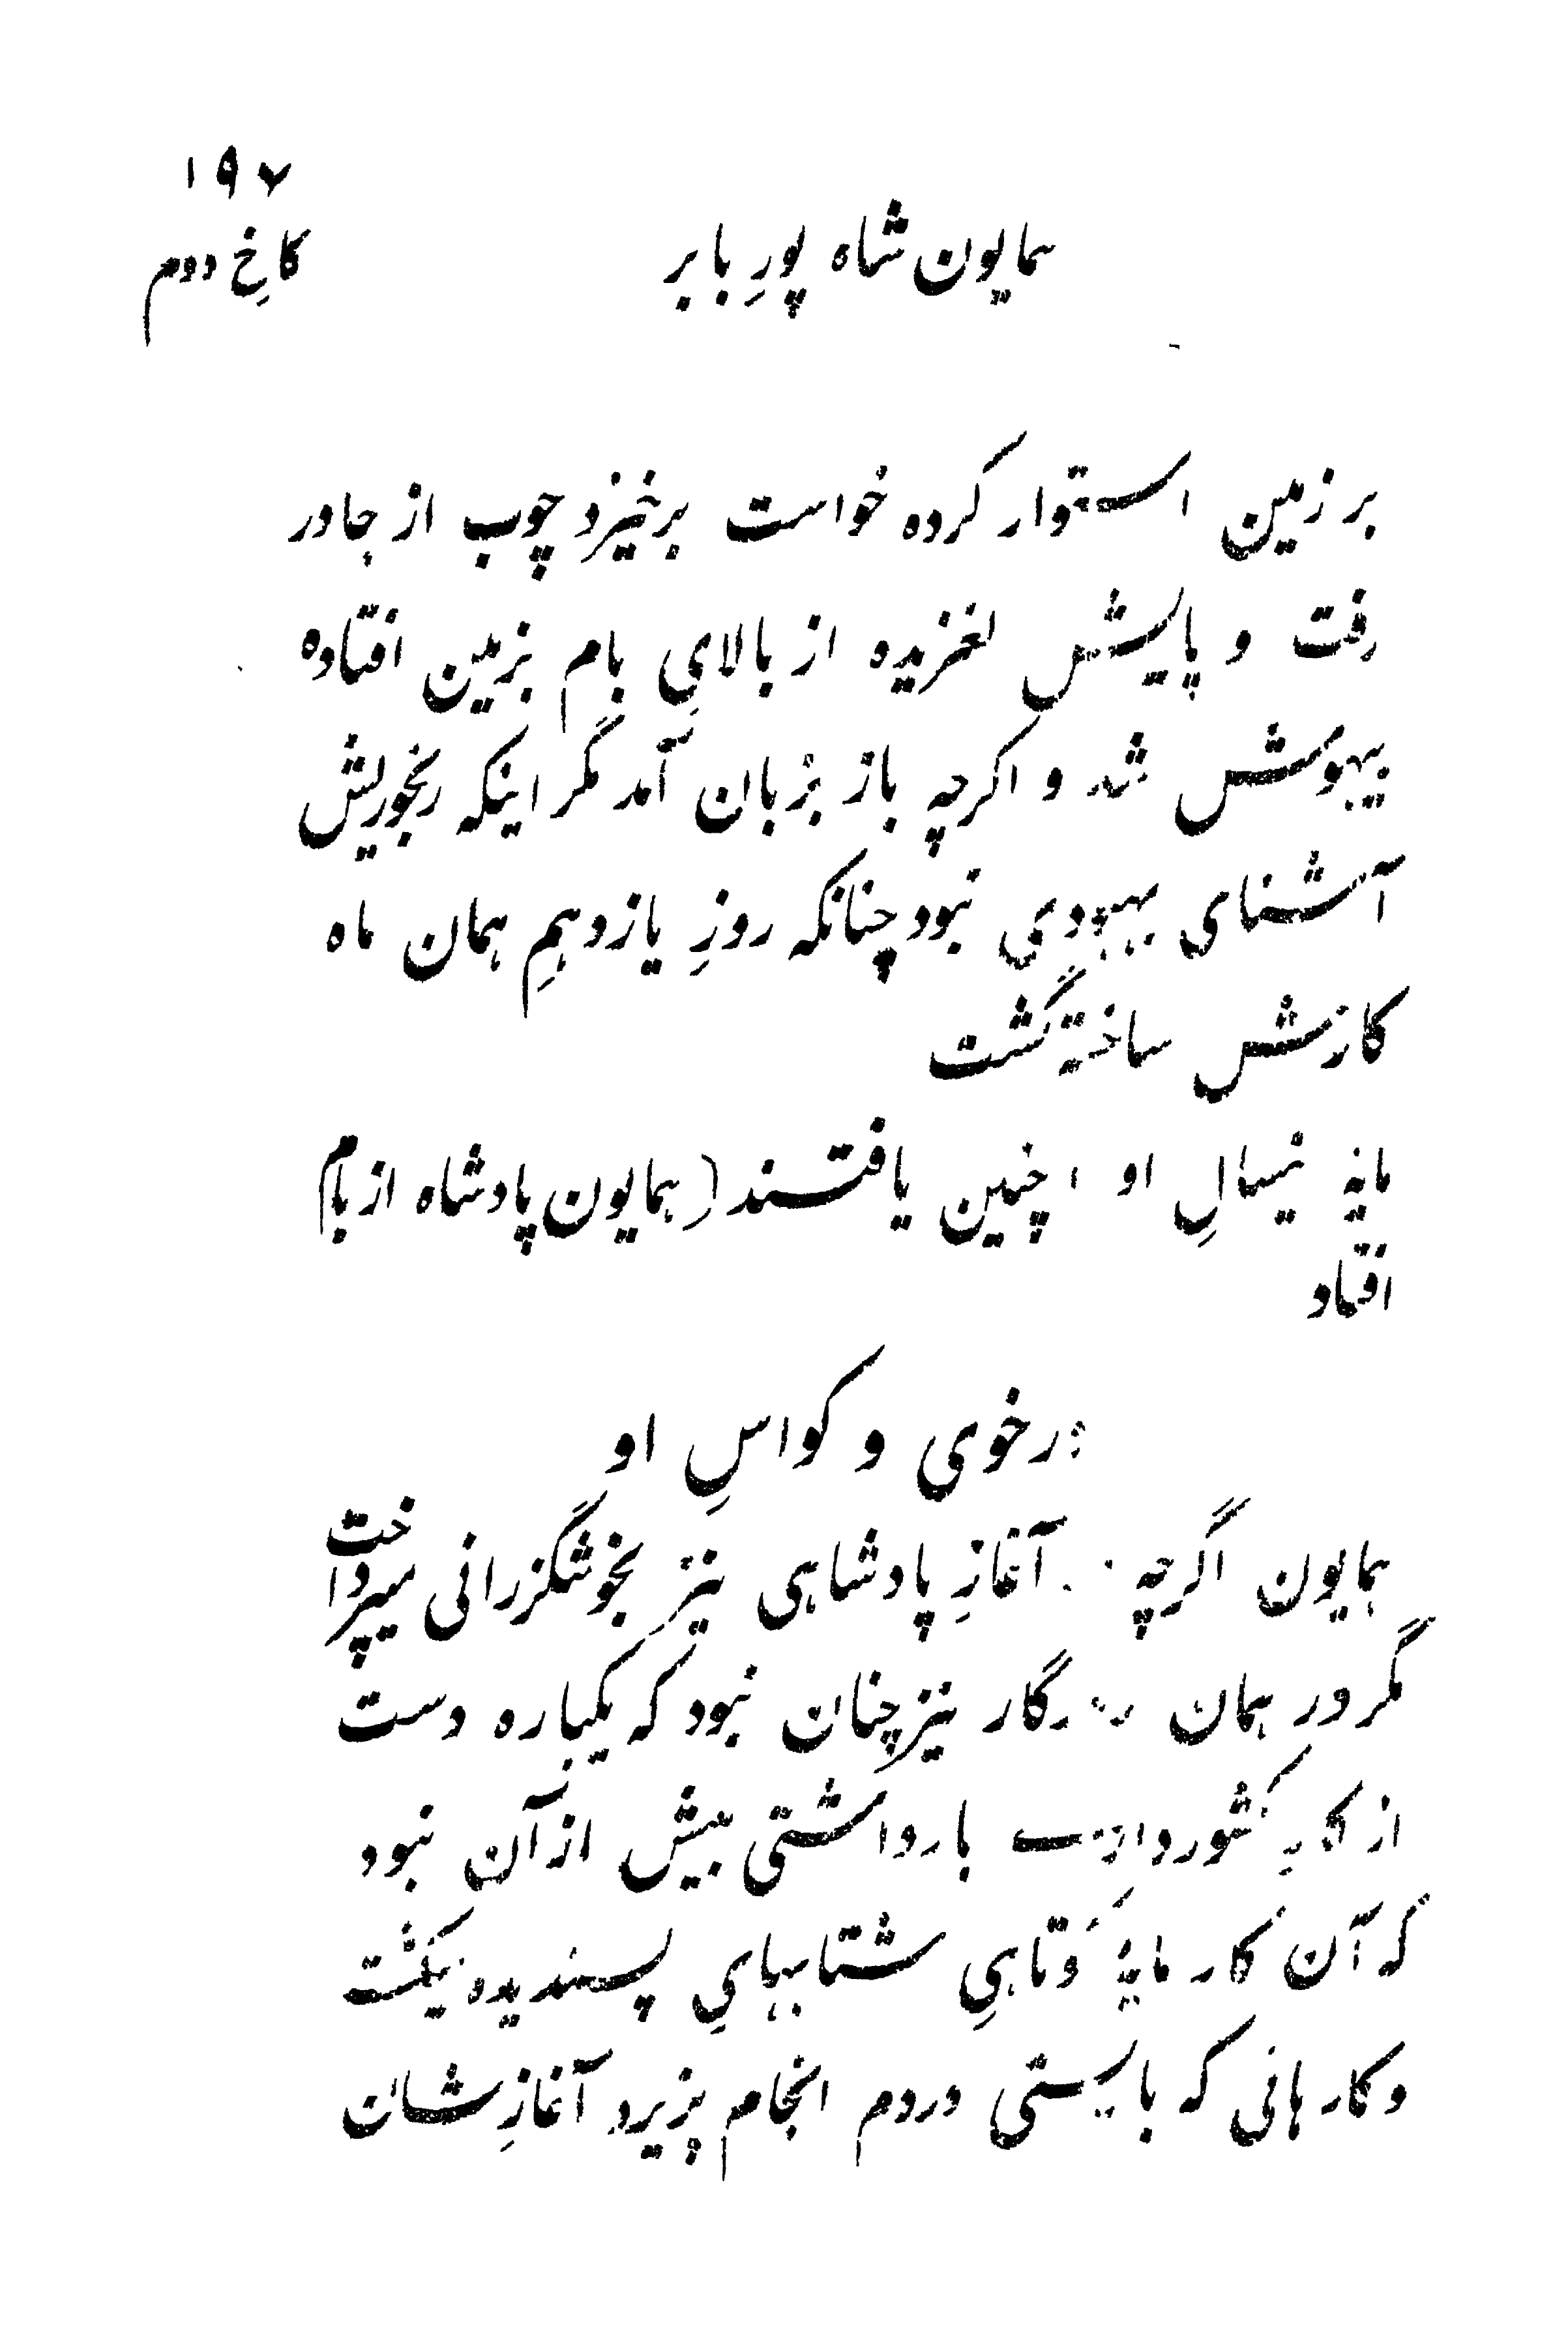 ۱۹۷
همایون شاه پورِ بابر
کاخِ دوم
بر زمین استوار کرده خواست برخیزد چوب از جا در
رفت و پایش لغزیده از بالایِ بام بزمین افتاده
بیهوش شد و اگرچه باز بزبان آمد مگر اینکه رنجوریش
آشنای بهبودی نبود چنانکه روزِ یازدهمِ همان ماه
کارش ساخته گشت
مایه نیسالِ او چنین یافتند (همایون پادشاه از بام
افتاد
در خوی و کواسِ او
همایون اگرچه آغازِ پادشاهی نیز بخوشگزرانی میپرداخت
مگر در همان گار نیز چنان نبود که یکباره دست
از کارِ کشور باز داشتی بیش از آن نبود
که آن کار مایهٔ کوتاهیِ شتابهایِ پسندیده نیگشت
و کار هائی که بایستی در دم انجام پزیرد آغازِ شان